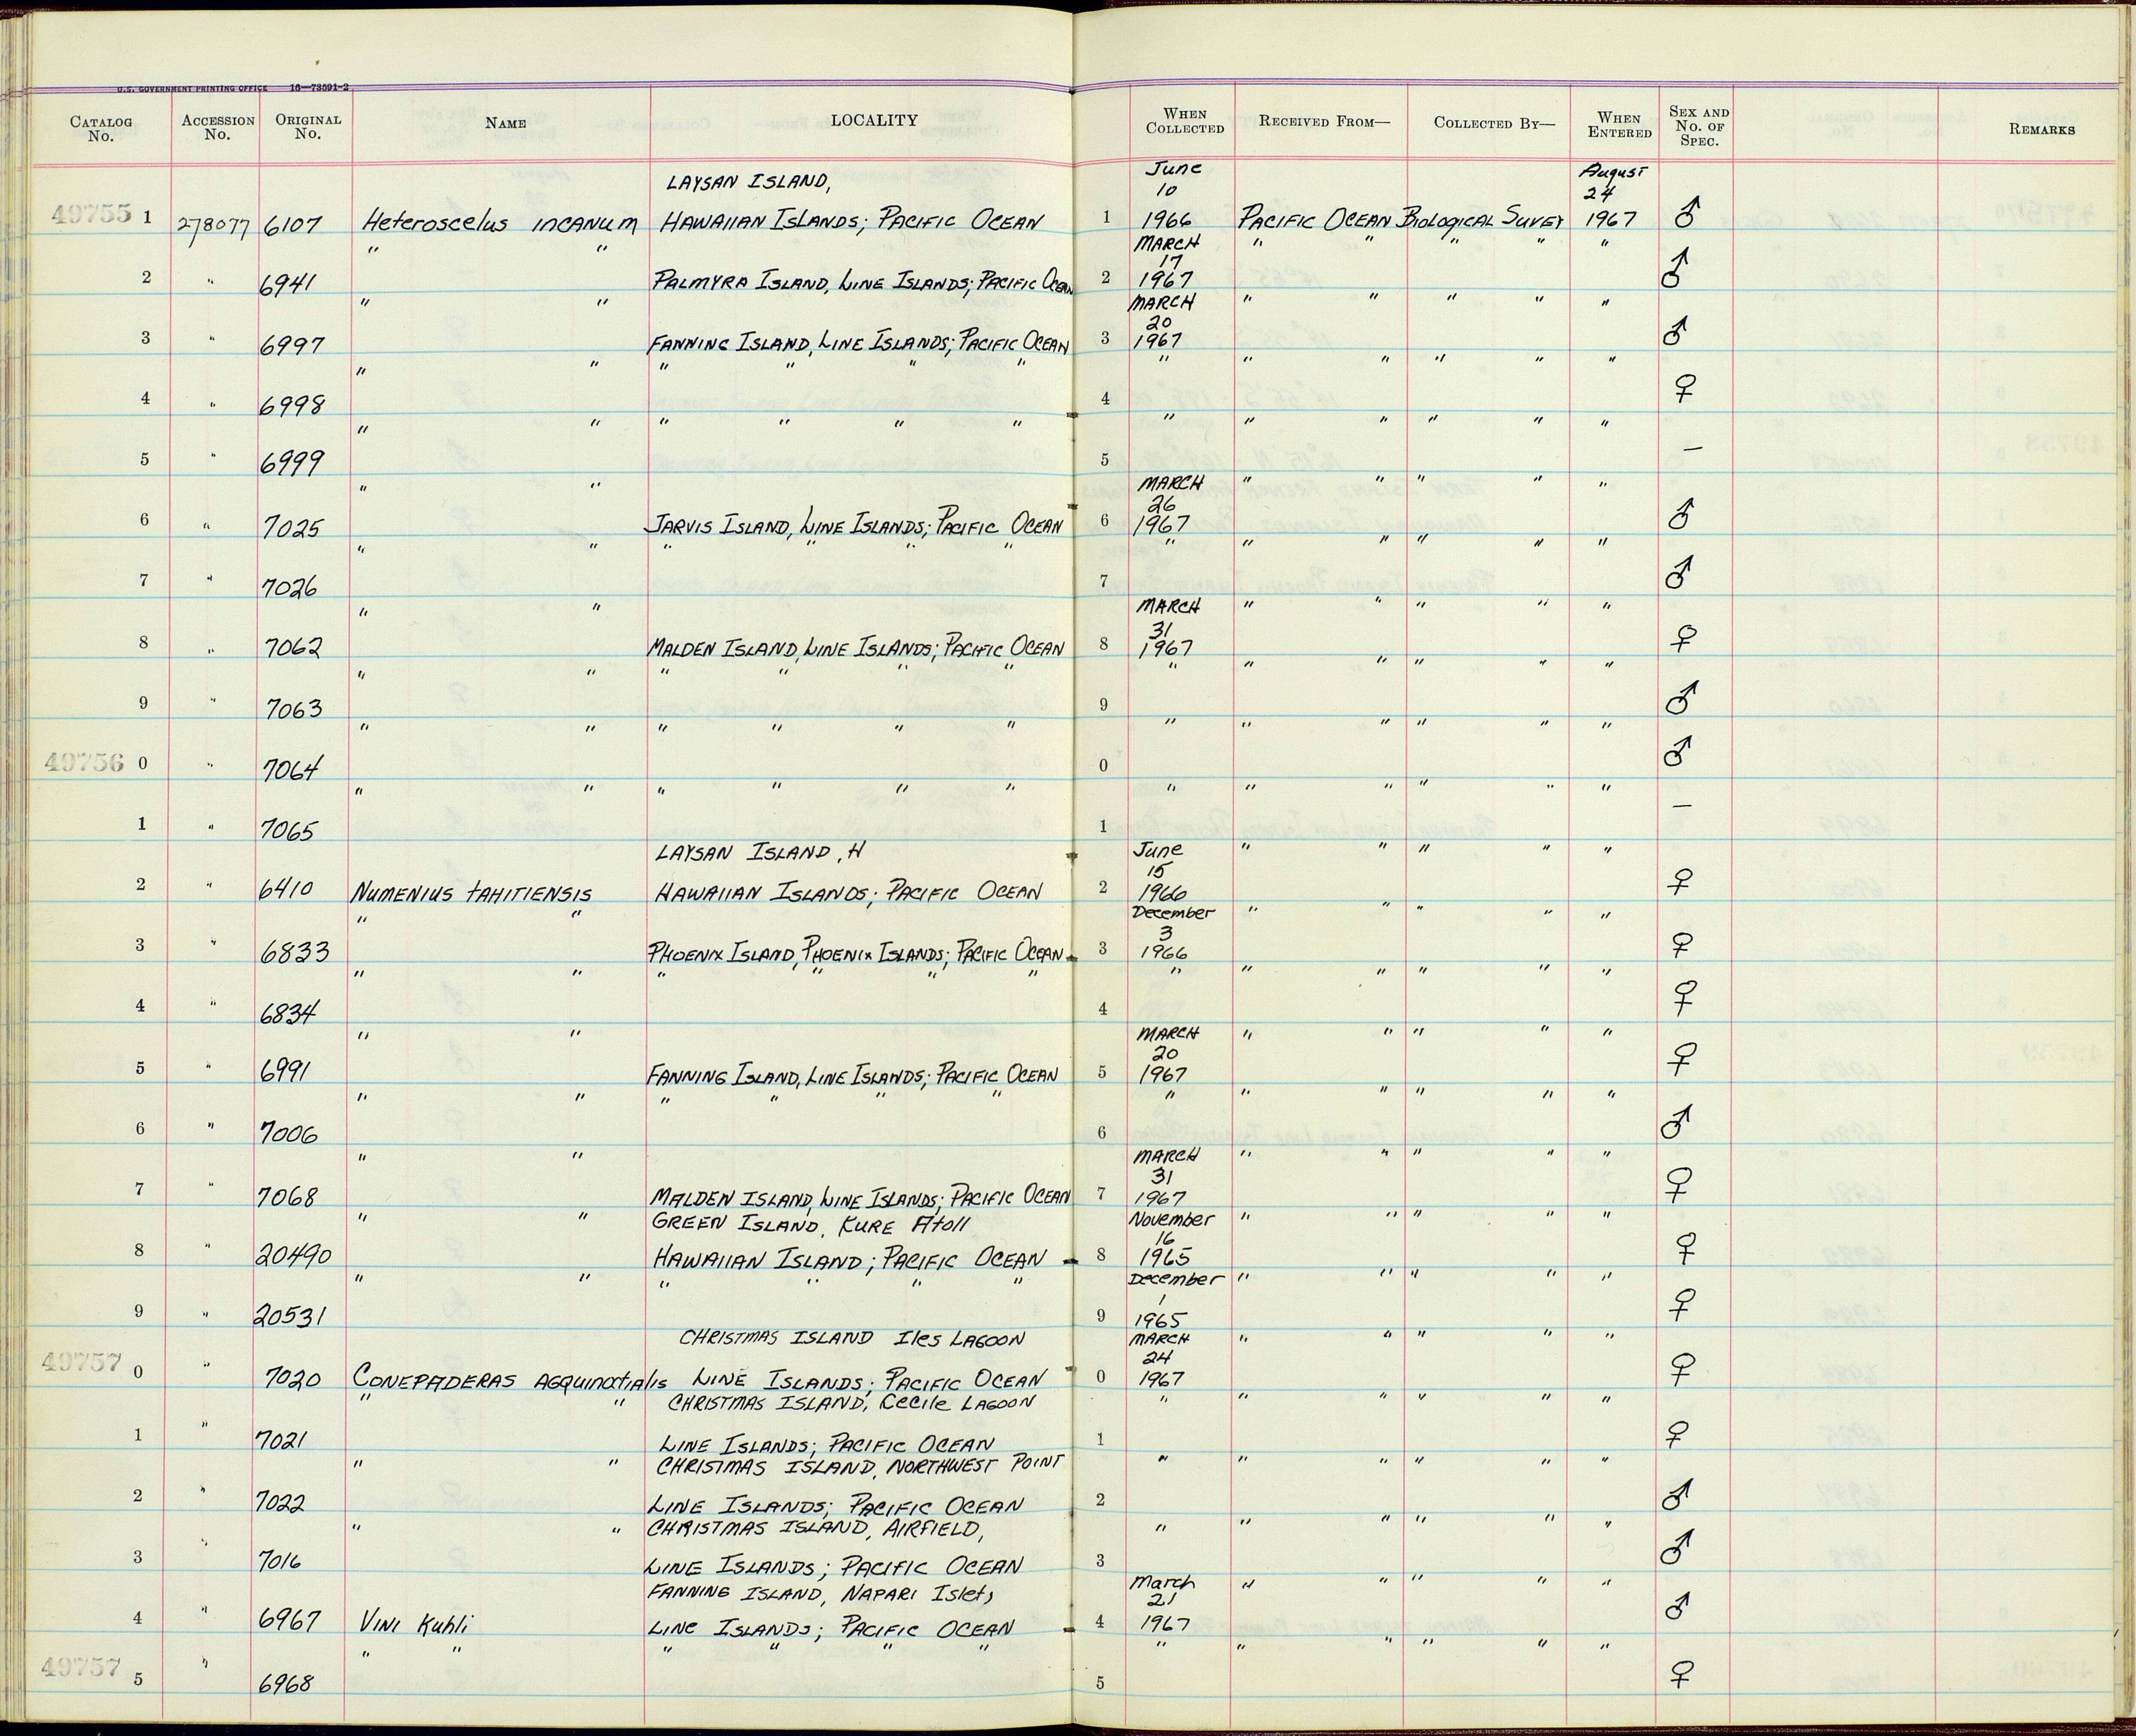 U.S. GOVERNMENT PRINTING OFFICE 16—73591-2
CATALOG No. ACCESSION No. ORIGINAL No. NAME LOCALITY WHEN COLLECTED RECEIVED FROM— COLLECTED BY— WHEN ENTERED SEX AND No. OF SPEC. REMARKS
LAYSAN ISLAND, June 10 August 24
49755 1 278077 6107 Heteroscelus incanum HAWAIIAN ISLANDS; PACIFIC OCEAN 1 1966 PACIFIC OCEAN BIOLOGICAL SUVEY 1967 ♂
" " MARCH 17 " " " " "
2 " 6941 PALMYRA ISLAND, LINE ISLANDS; PACIFIC OCEAN 2 1967 ♂
" " MARCH 20 " " " " "
3 " 6997 FANNING ISLAND, LINE ISLANDS; PACIFIC OCEAN 3 1967 ♂
" " " " " " " " " " " "
4 " 6998 4 ♀
" " " " " " " " " " " "
5 " 6999 5 —
" " MARCH 26 " " " " "
6 " 7025 JARVIS ISLAND, LINE ISLANDS; PACIFIC OCEAN 6 1967 ♂
" " " " " " " " " " " "
7 " 7026 7 ♂
" " MARCH 31 " " " " "
8 " 7062 MALDEN ISLAND, LINE ISLANDS; PACIFIC OCEAN 8 1967 ♀
" " " " " " " " " " " "
9 " 7063 9 ♂
" " " " " " " " " " " "
49756 0 " 7064 0 ♂
" " " " " " " " " " " "
1 " 7065 1 —
LAYSAN ISLAND, H June 15 " " " " "
2 " 6410 NUMENIUS tAHITIENSIS HAWAIIAN ISLANDS; PACIFIC OCEAN 2 1966 ♀
" " December 3 " " " " "
3 " 6833 PHOENIX ISLAND, PHOENIX ISLANDS; PACIFIC OCEAN 3 1966 ♀
" " " " " " " " " " " "
4 " 6834 4 ♀
" " MARCH 20 " " " " "
5 " 6991 FANNING ISLAND, LINE ISLANDS; PACIFIC OCEAN 5 1967 ♀
" " " " " " " " " " " "
6 " 7006 6 ♂
" " MARCH 31 " " " " "
7 " 7068 MALDEN ISLAND, LINE ISLANDS; PACIFIC OCEAN 7 1967 ♀
" " GREEN ISLAND, KURE Atoll November 16 " " " " "
8 " 20490 HAWAIIAN ISLAND; PACIFIC OCEAN 8 1965 ♀
" " " " " " December 1 " " " " "
9 " 20531 9 1965 ♀
CHRISTMAS ISLAND Iles LAGOON MARCH 24 " " " " "
49757 0 " 7020 CONEPADERAS AEQuinoctialis LINE ISLANDS; PACIFIC OCEAN 0 1967 ♀
" " CHRISTMAS ISLAND, Cecile LAGOON " " " " " "
1 " 7021 LINE ISLANDS; PACIFIC OCEAN 1 ♀
" " CHRISTMAS ISLAND, NORTHWEST POINT " " " " " "
2 " 7022 LINE ISLANDS; PACIFIC OCEAN 2 ♂
" " CHRISTMAS ISLAND, AIRFIELD, " " " " " "
3 " 7016 LINE ISLANDS; PACIFIC OCEAN 3 ♂
FANNING ISLAND, NAPARI Islet, March 21 " " " " "
4 " 6967 VINI Kuhli LINE ISLANDS; PACIFIC OCEAN 4 1967 ♂
" " " " " " " " " " " "
49757 5 " 6968 5 ♀